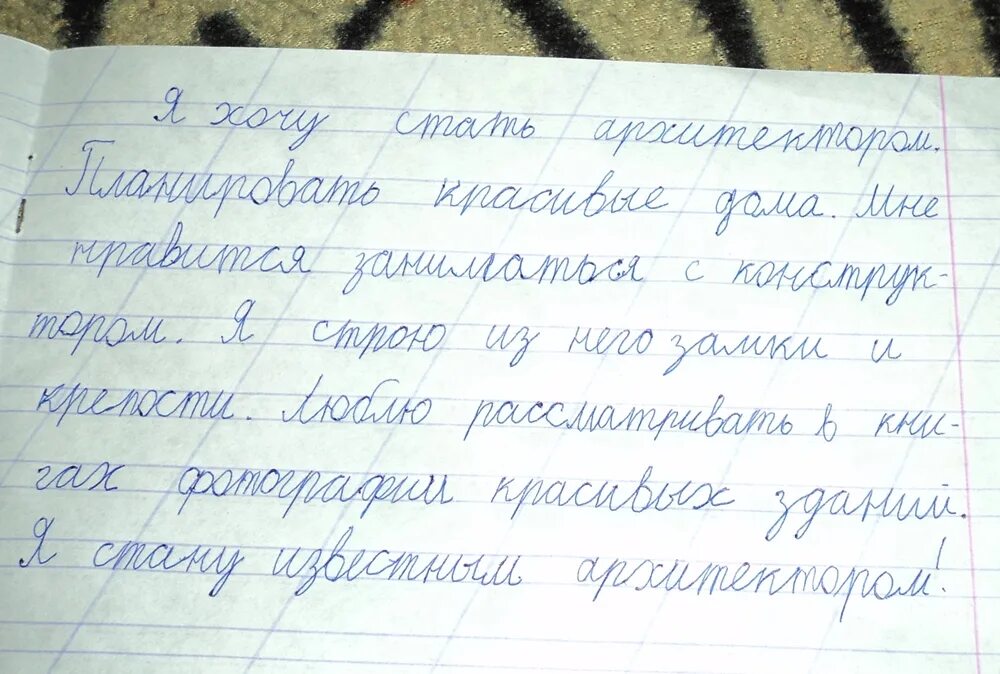 Я хочу стать архитектором.
Планировать красивые дома. Мне
нравится заниматься с конструк-
тором. Я строю из него замки и
крепости. Люблю рассматривать в кни-
гах фотографии красивых зданий.
Я стану известным архитектором!